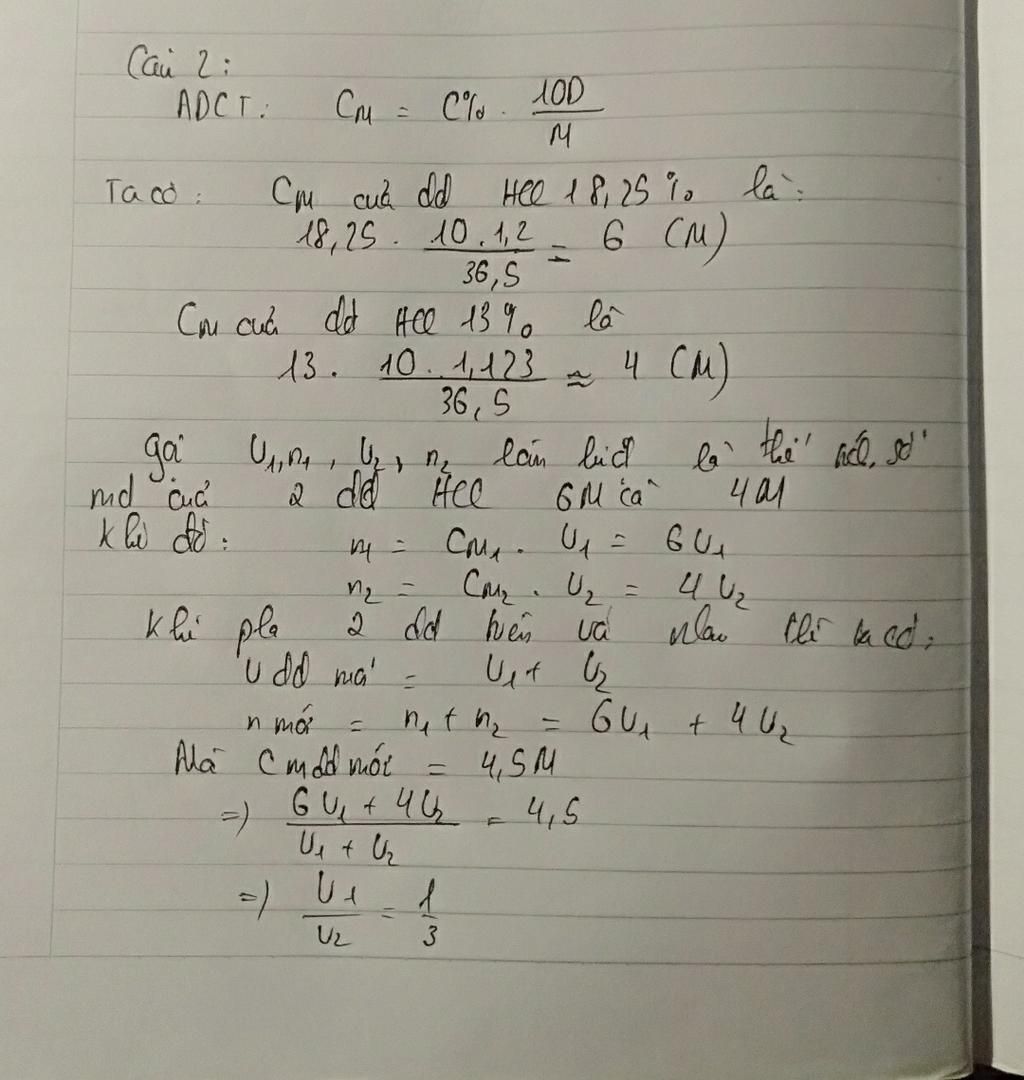 Câu 2:
ADCT: CM = C% . 10D / M
Ta có: CM của dd HCl 18,25% là:
18,25 . 10.1,2 / 36,5 = 6 (M)
CM của dd HCl 13% là
13. 10.1,123 / 36,5 ≈ 4 (M)
gọi V1, n1, V2, n2 lần lượt là thể tích, số
mol của 2 dd HCl 6M và 4M
Khi đó: n1 = CM1 . V1 = 6V1
n2 = CM2 . V2 = 4V2
Khi pha 2 dd trên với nhau thì ta có:
V dd mới = V1 + V2
n mới = n1 + n2 = 6V1 + 4V2
Mà CM dd mới = 4,5M
=> 6V1 + 4V2 / V1 + V2 = 4,5
=> V1 / V2 = 1 / 3